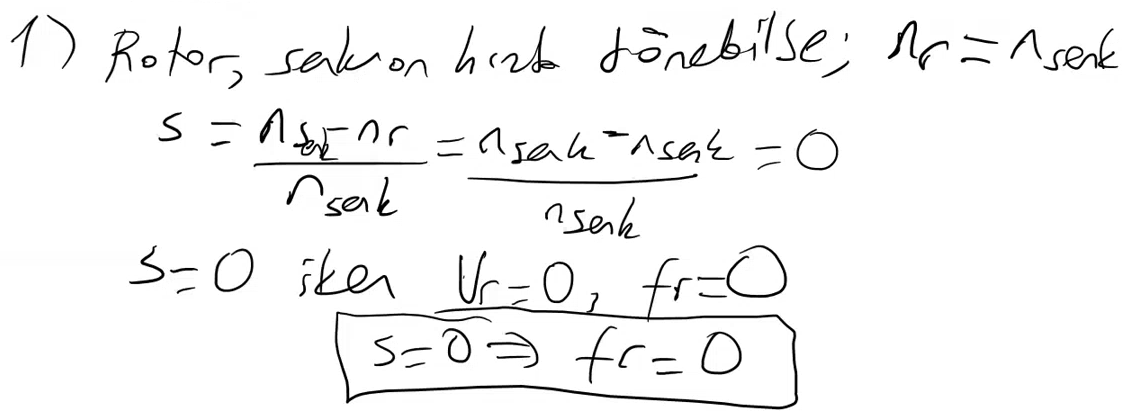 1) Rotor, senkron hızda dönebilse; nr = nsenk
s = nsenk - nr / nsenk = nsenk - nsenk / nsenk = 0
s=0 iken Vr=0, fr=0
s=0 ⇒ fr=0